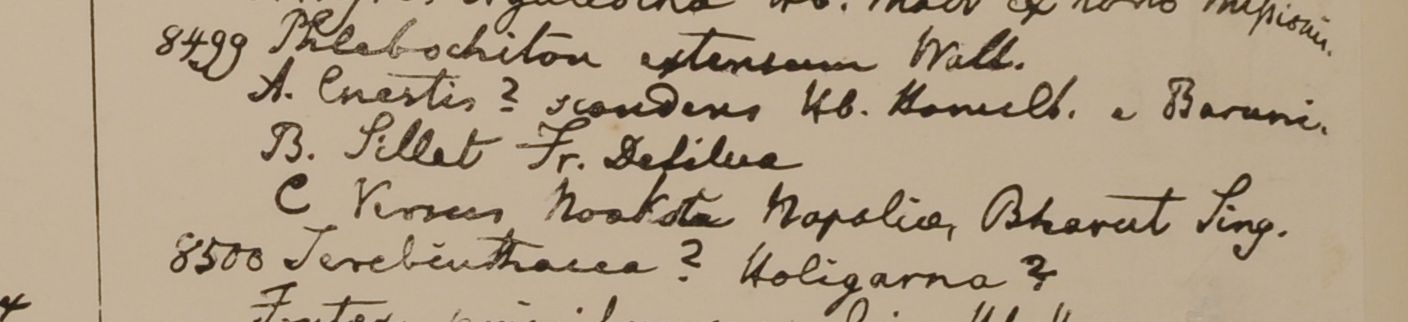 Hb. Madr ex
8499 Phlebochiton extensum Wall.
A. Cnestis? scandens Hb. Hamilt. e Baruni.
B. Sillet Fr. De Silva
C Versus Noakote Napaliae, Bharut Sing.
8500 Terebinthacea? Holigarna?
Frutex